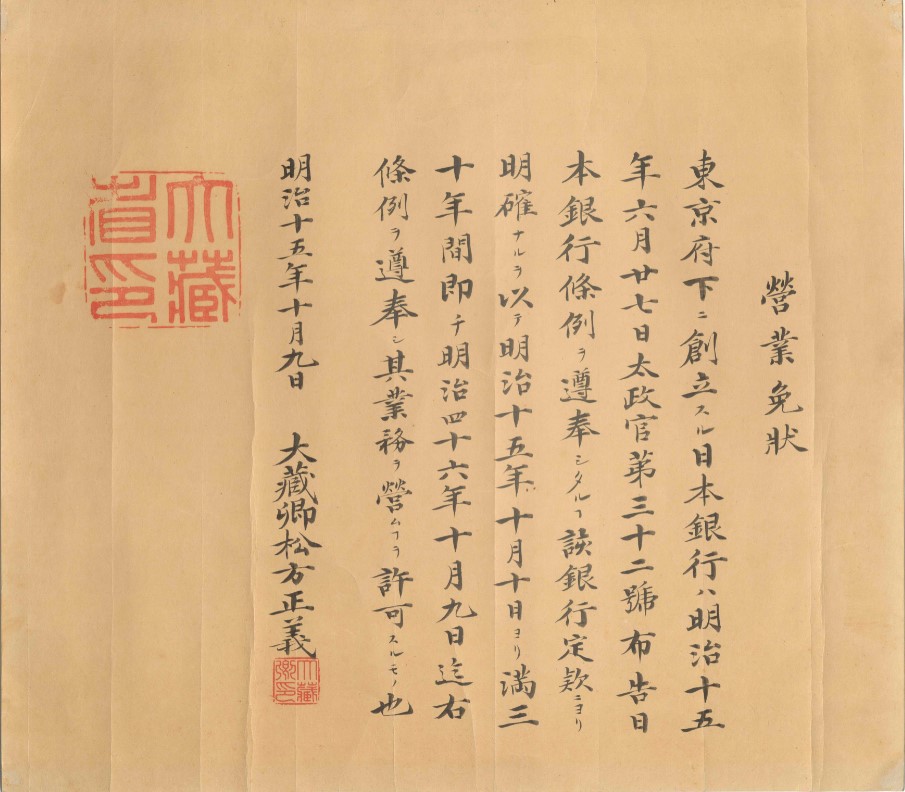 營業免狀
東京府下ニ創立スル日本銀行ハ明治十五
年六月廿七日太政官第三十二號布告日
本銀行條例ヲ遵奉シタルヿ該銀行定款ニヨリ
明確ナルヲ以テ明治十五年十月十日ヨリ満三
十年間即チ明治四十六年十月九日迄右
條例ヲ遵奉シ其業務ヲ營ムヿヲ許可スルモノ也
明治十五年十月九日 大藏卿松方正義
大藏卿印
大藏省印